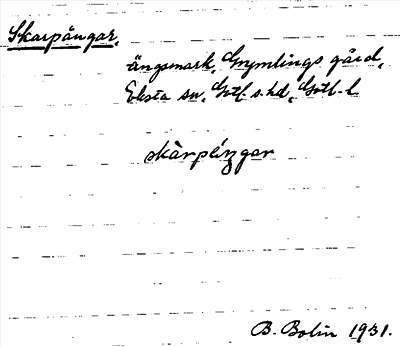 Skarpängar,
ängsmark, Grymlings gård,
Eksta sn, Gotl. s. hd, Gotl. l.
skàrpéŋgar
B. Bolin 1931.